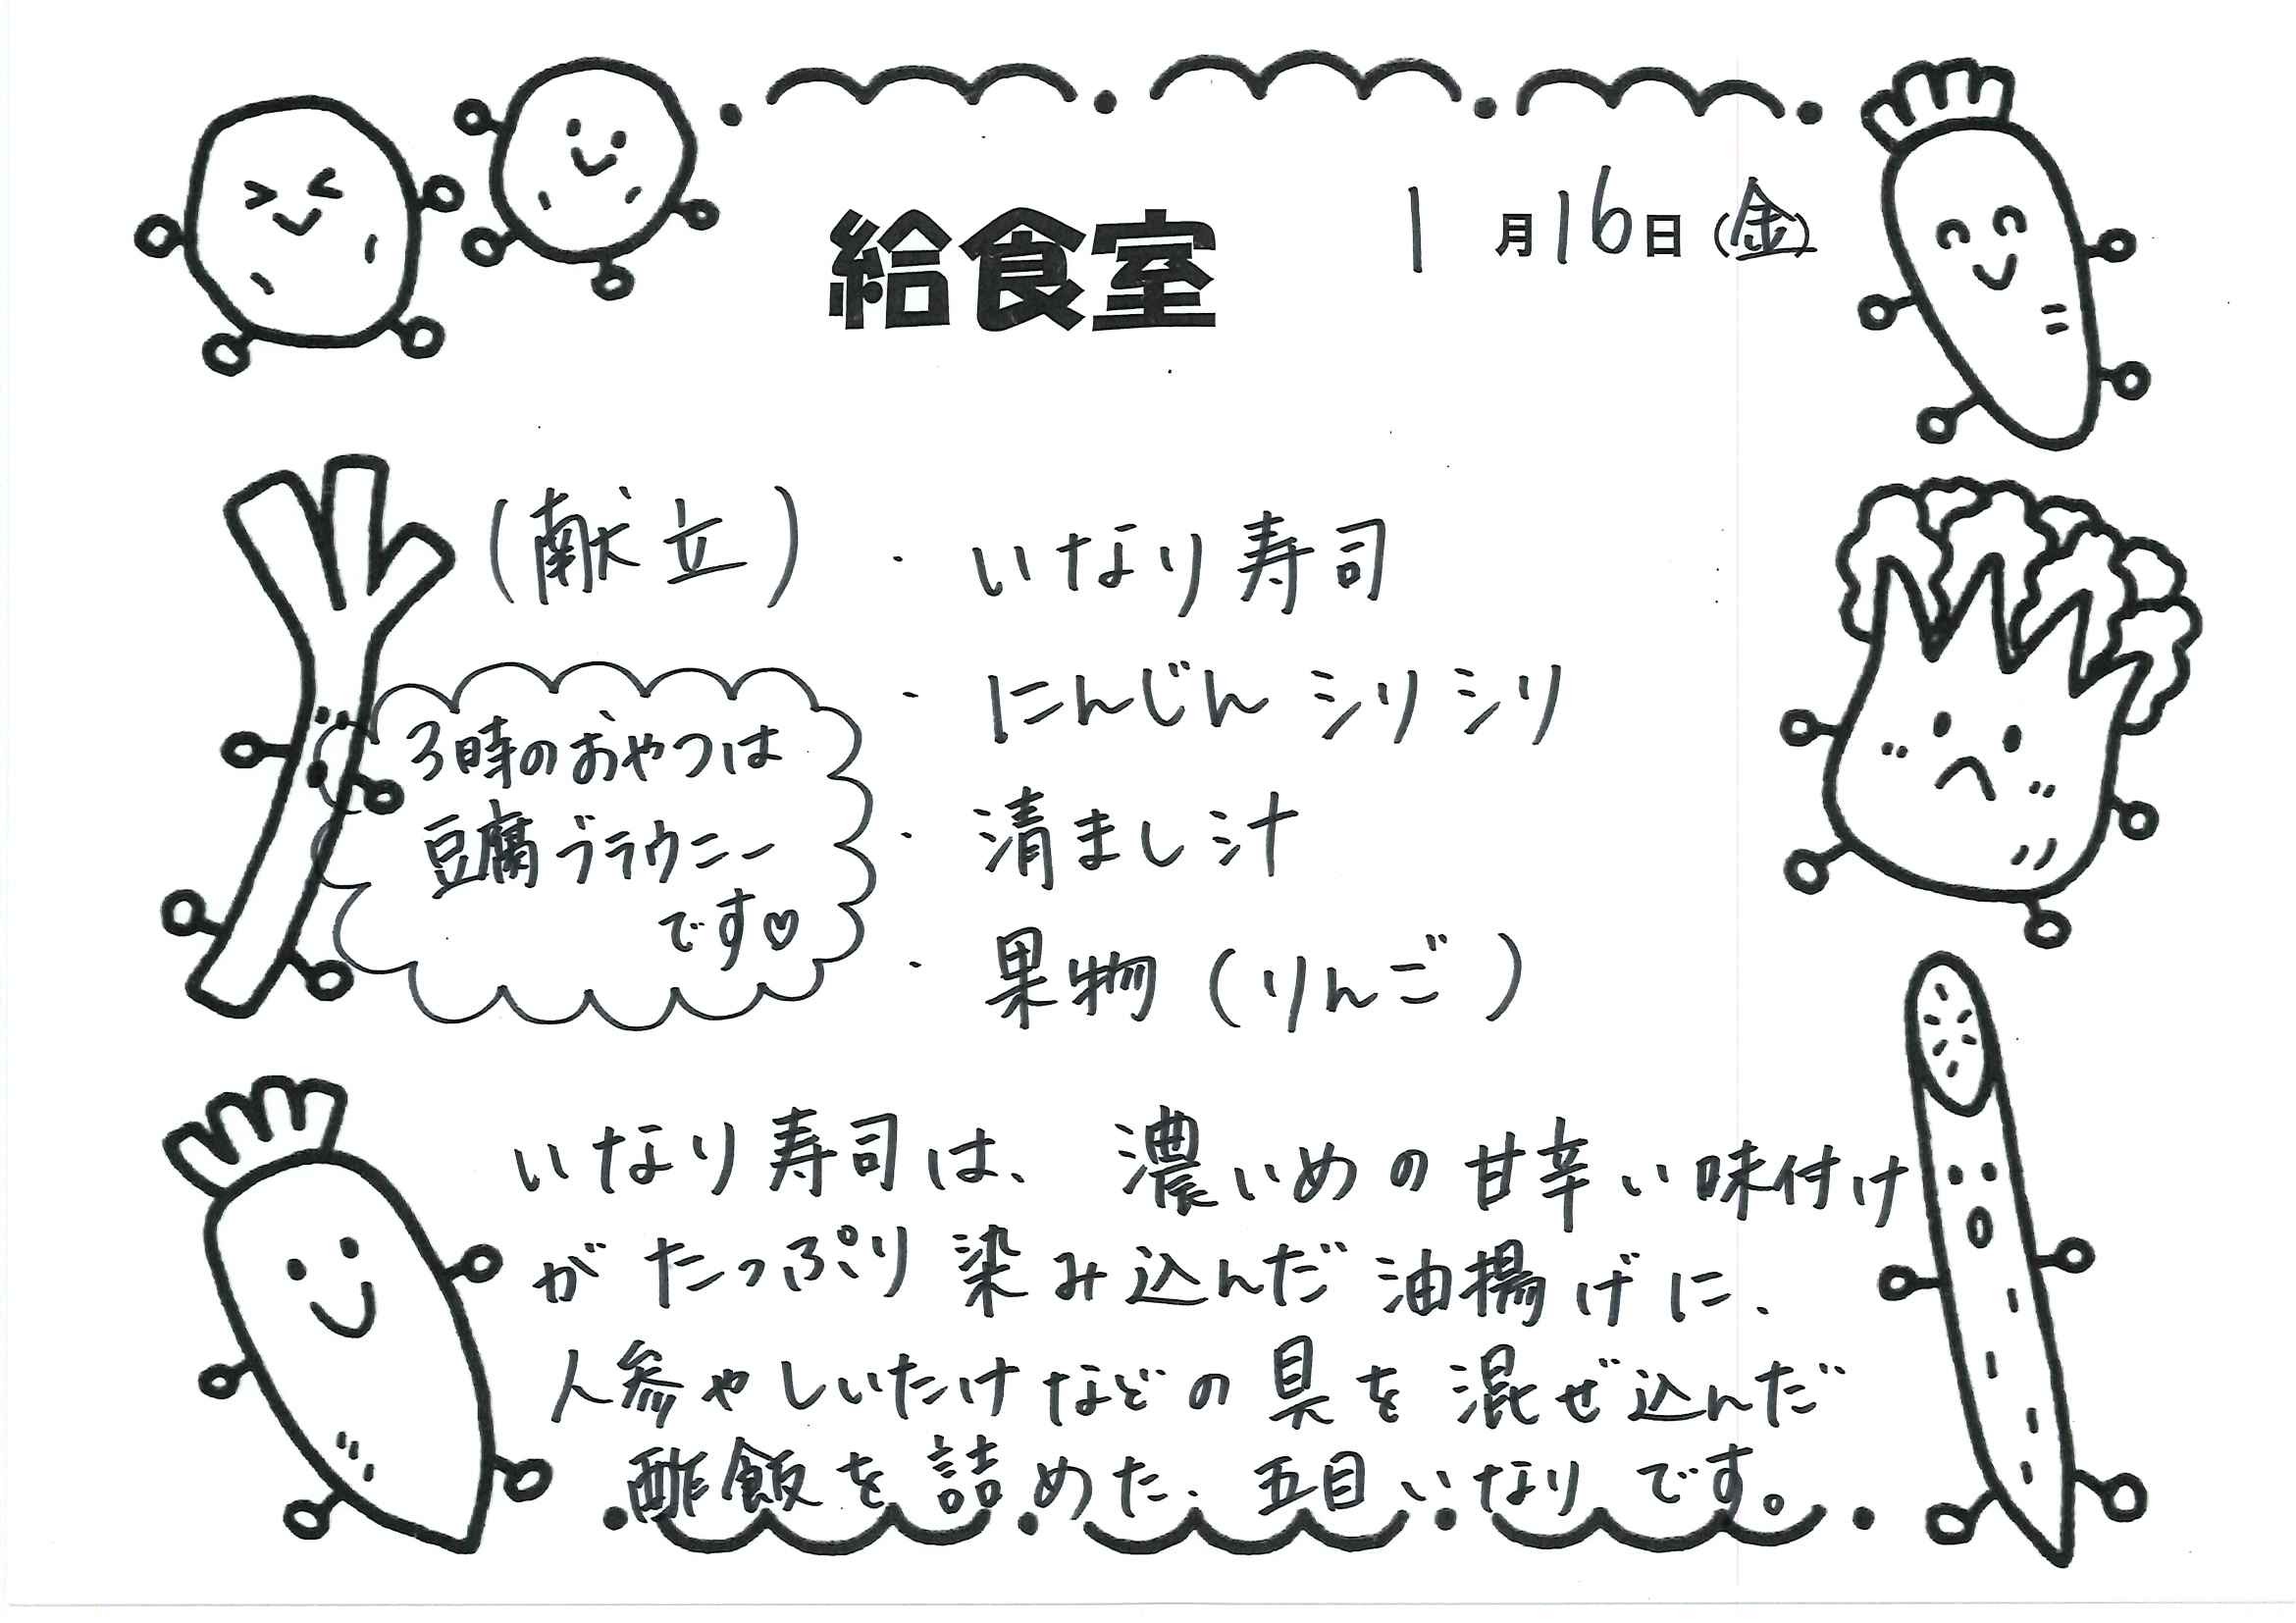 給食室
1月16日(金)
(献立)
・いなり寿司
・にんじんシリシリ
・清まし汁
・果物(りんご)
3時のおやつは
豆腐ブラウニー
です♡
いなり寿司は、濃いめの甘辛い味付け
がたっぷり染み込んだ油揚げに、
人参やしいたけなどの具を混ぜ込んだ
酢飯を詰めた、五目いなりです。